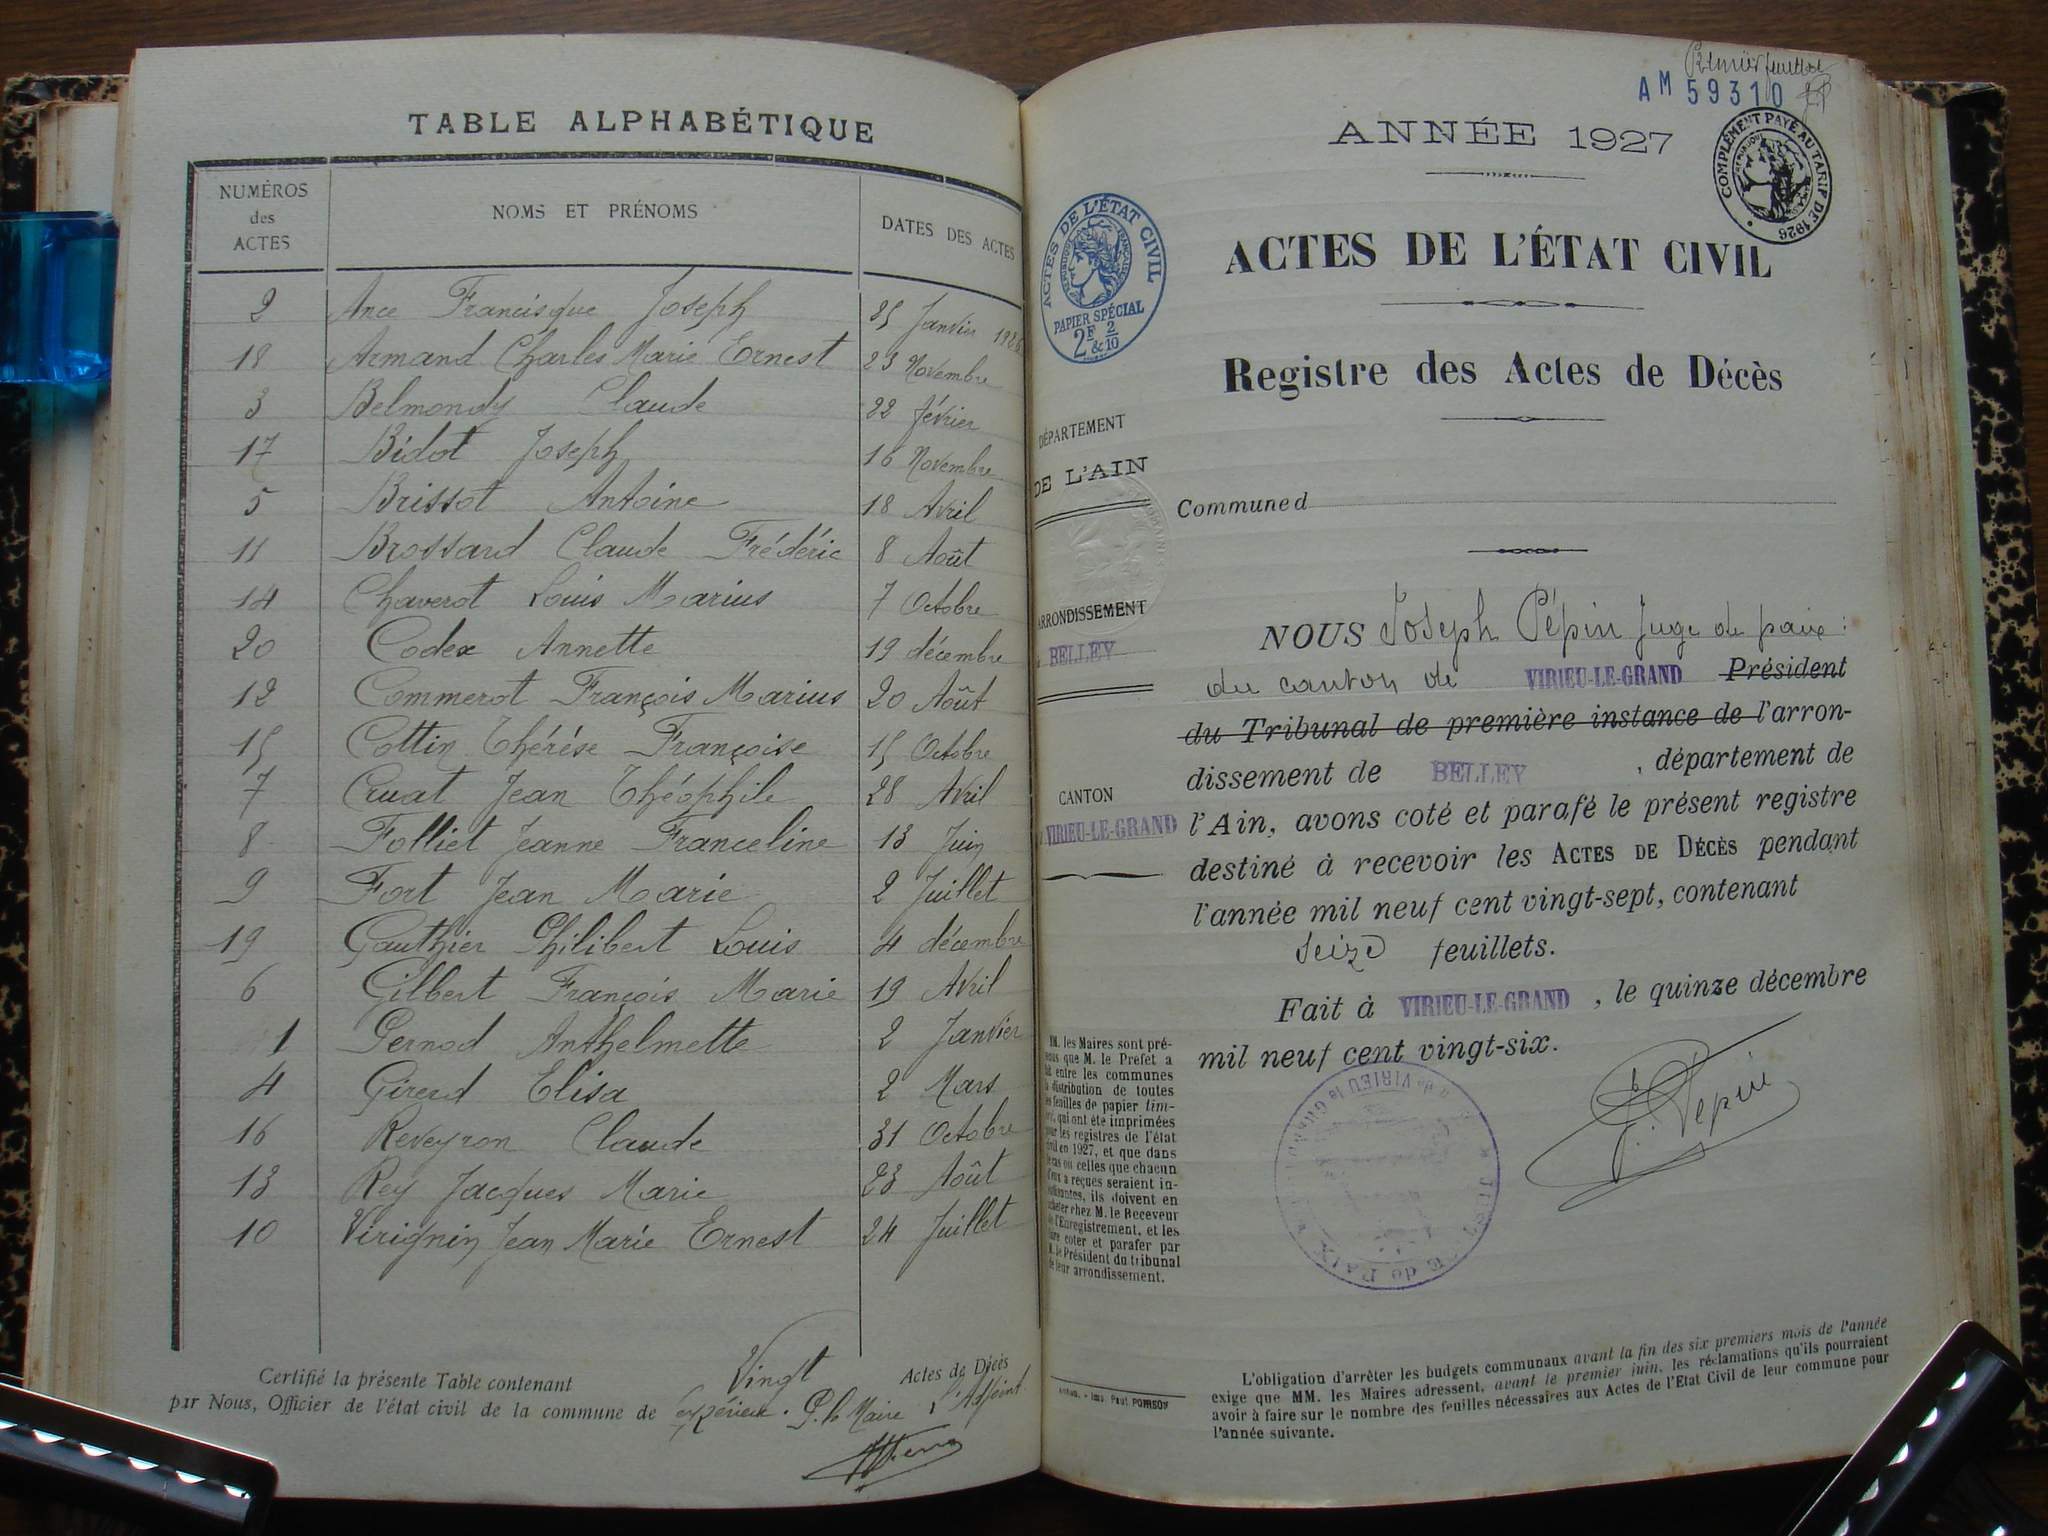 TABLE ALPHABÉTIQUE
NUMÉROS des ACTES NOMS ET PRÉNOMS DATES DES ACTES
2 Ance Francisque Joseph 25 Janvier 1926
18 Armand Charles Marie Ernest 23 Novembre
3 Belmondy Claude 22 février
17 Bidot Joseph 16 Novembre
5 Brissot Antoine 18 Avril
11 Brossard Claude Frédéric 8 Août
14 Chaverot Louis Marius 7 Octobre
20 Codex Annette 19 décembre
12 Commerot François Marius 20 Août
15 Cottin Thérése Françoise 15 Octobre
7 Cruat Jean Théophile 28 Avril
8 Folliet Jeanne Franceline 13 Juin
9 Fort Jean Marie 2 Juillet
19 Gauthier Philibert Louis 4 décembre
6 Gilbert François Marie 19 Avril
1 Gernod Anthelmette 2 Janvier
4 Girerd Elisa 2 Mars
16 Reveyron Claude 31 Octobre
13 Rey Jacques Marie 23 Août
10 Virignin Jean Marie Ernest 24 Juillet
Certifié la présente Table contenant Vingt Actes de Décès
par Nous, Officier de l'état civil de la commune de P. le Maire l'Adjoint
Premier feuillet
AM 59310
COMPLÉMENT PAYÉ AU TARIF DE 1926
ANNÉE 1927
ACTES DE L'ÉTAT CIVIL
RÉPUBLIQUE FRANÇAISE
PAPIER SPÉCIAL
2F & 2/10
ACTES DE L'ÉTAT CIVIL
Registre des Actes de Décès
DÉPARTEMENT
DE L'AIN
ARRONDISSEMENT
BELLEY
CANTON
VIRIEU-LE-GRAND
Commune d
NOUS Joseph Pépin Juge de paix
du canton de VIRIEU-LE-GRAND Président
du Tribunal de première instance de l'arron-
dissement de BELLEY , département de
l'Ain, avons coté et parafé le présent registre
destiné à recevoir les ACTES DE DÉCÈS pendant
l'année mil neuf cent vingt-sept, contenant
seize feuillets.
Fait à VIRIEU-LE-GRAND , le quinze décembre
mil neuf cent vingt-six.
J. Pépin
MM. les Maires sont pré-
venus que M. le Préfet a
fait entre les communes
la distribution de toutes
les feuilles de papier tim-
bré, qui ont été imprimées
pour les registres de l'état
civil en 1927, et que dans
le cas où celles que chacun
d'eux a reçues seraient in-
suffisantes, ils doivent en
acheter chez M. le Receveur
de l'Enregistrement, et les
faire coter et parafer par
M. le Président du tribunal
de leur arrondissement.
L'obligation d'arrêter les budgets communaux avant la fin des six premiers mois de l'année
exige que MM. les Maires adressent, avant le premier juin, les réclamations qu'ils pourraient
avoir à faire sur le nombre des feuilles nécessaires aux Actes de l'Etat Civil de leur commune pour
l'année suivante.